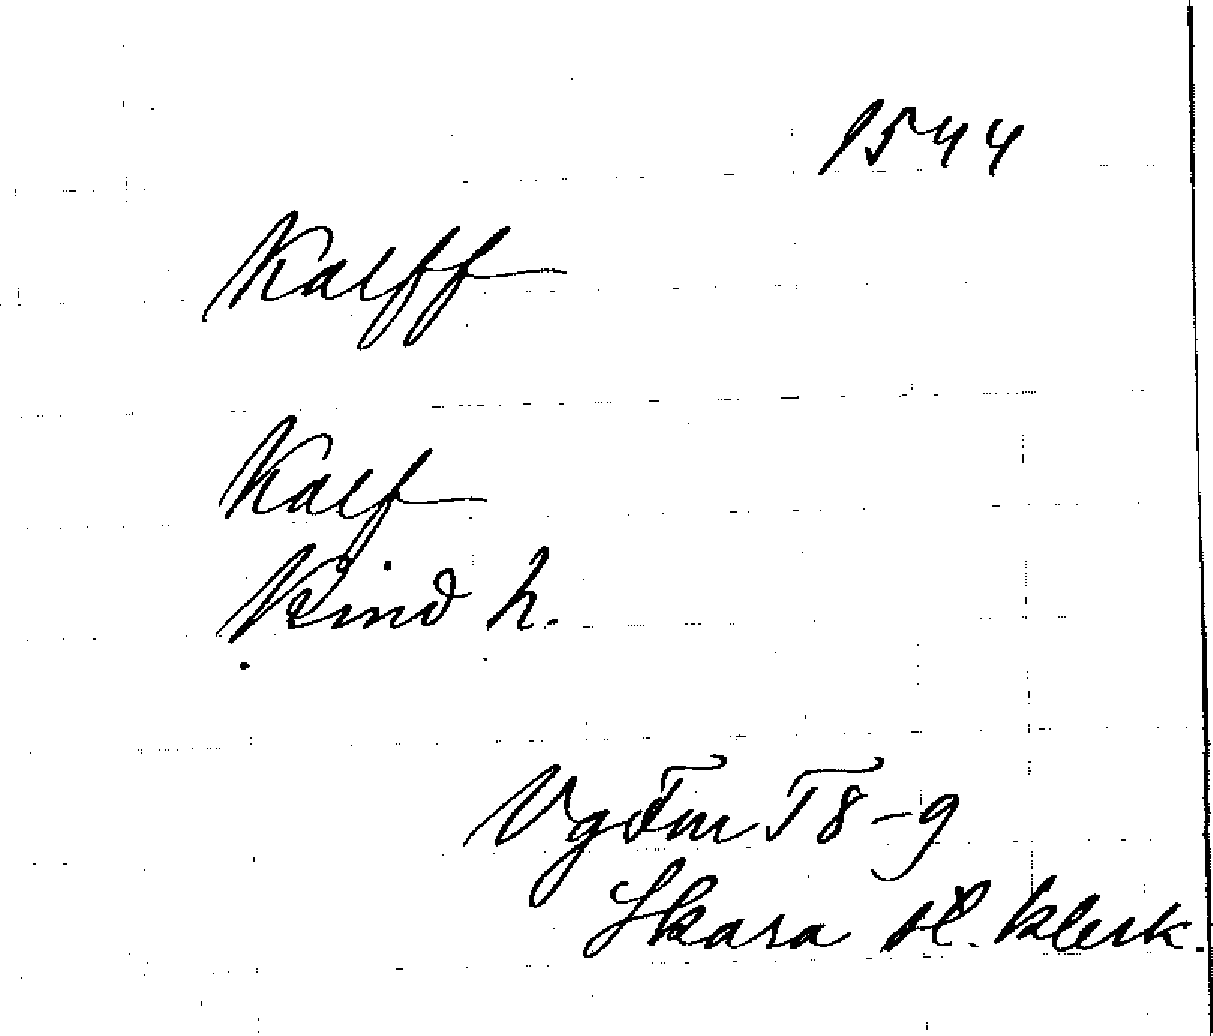 1544
Kalff
Kalf
Kind h.
VgFm T8-9
Skara st. klerk.